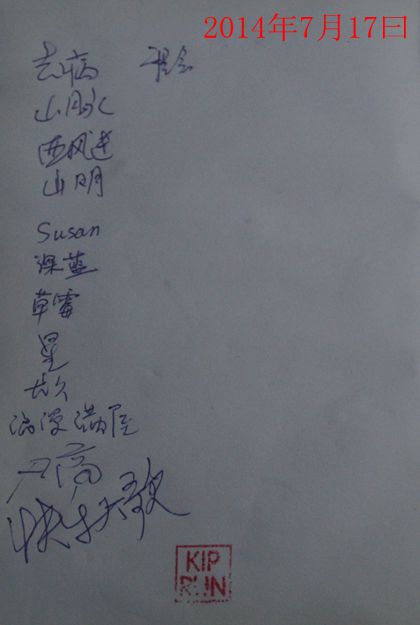 2014年7月17日
去病
山脉
西风连
山明
Susan
深蓝
草莓
星
长久
浪漫满屋
KIP
RUN